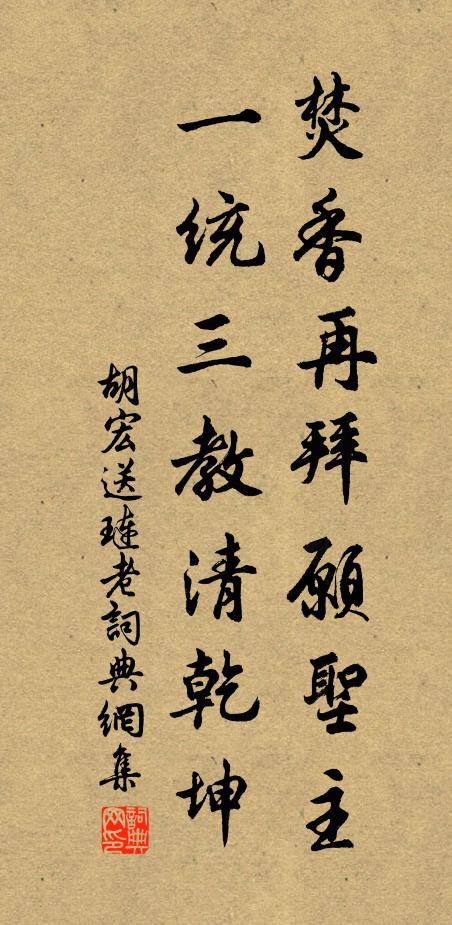 焚香再拜願聖主
一統三教清乾坤
胡宏送璉老詞典網集
詞典
网印